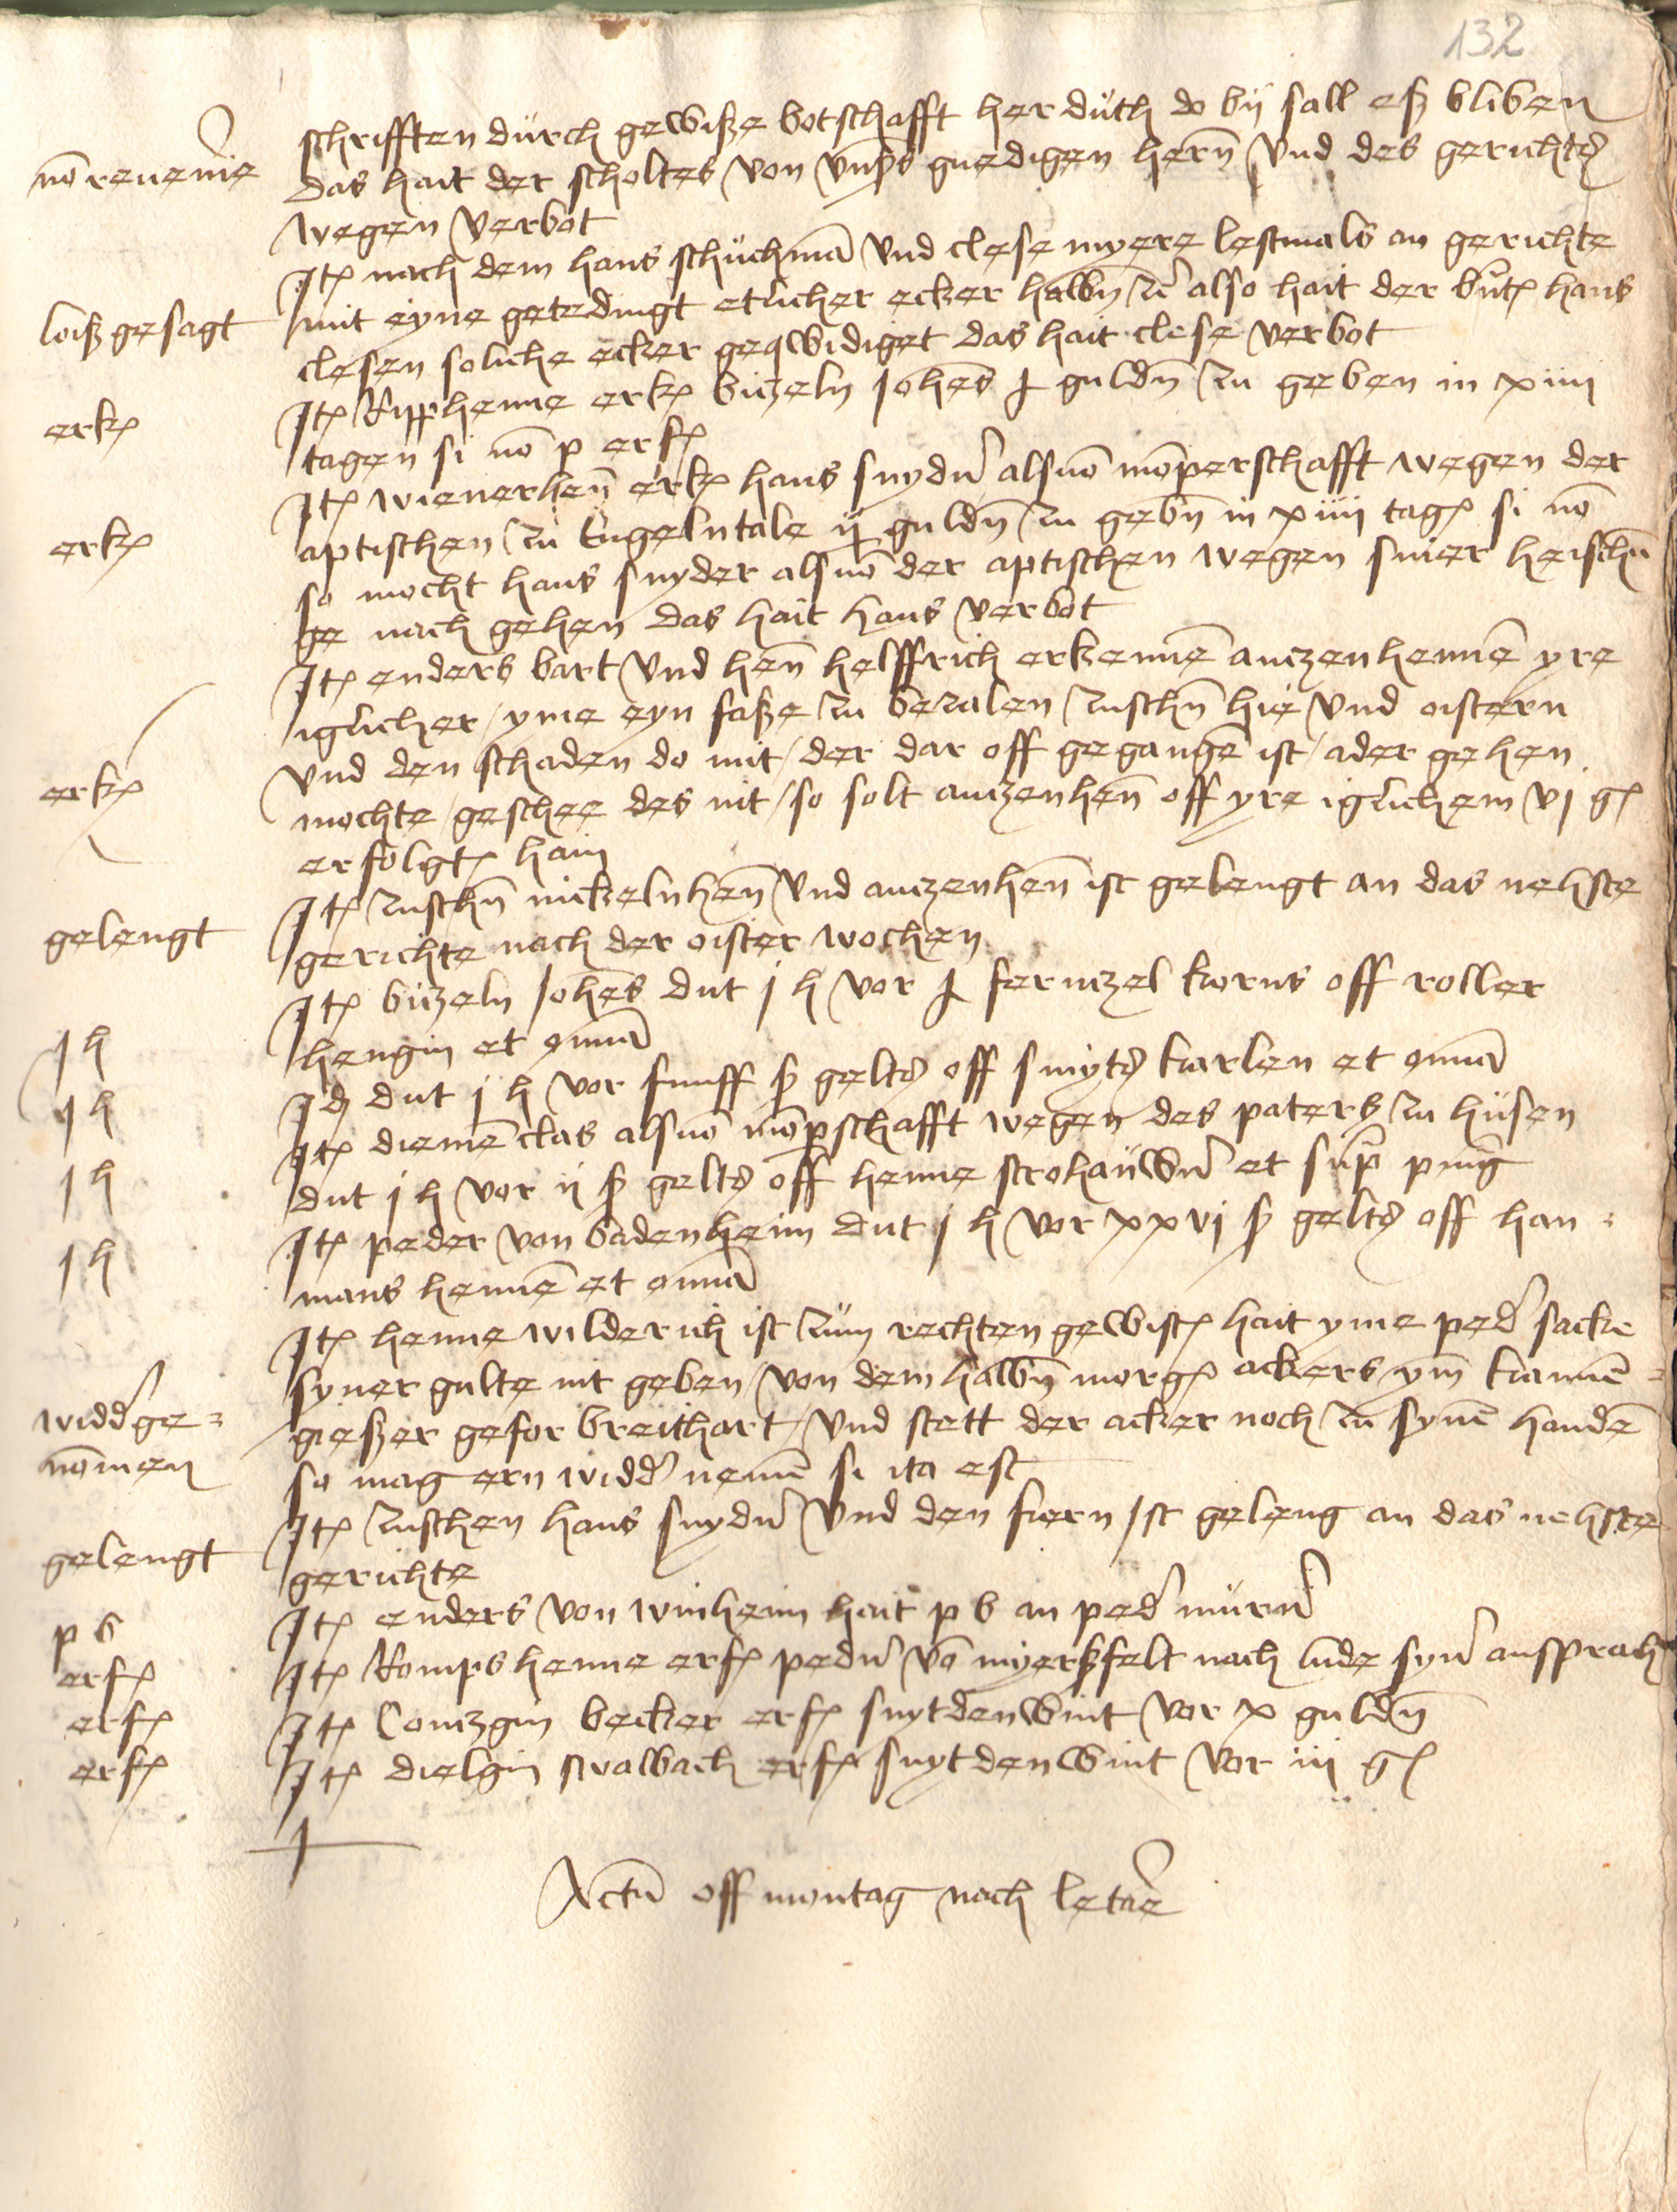 132
schrifften durch gewiße botschafft her duth do by sall eß bliben
das hait der scholtes von vnß gnedigen hern vnd des gerichts
wegen verbot
Itē nach dem hans schuchmā vnd clese myere lestmals an gerichte
loiß gesagt mit eyne getedingt etlicher ecker halbn also hait der hans
clesen soliche ecker geqwidiget das hait clese verbot
erkē Itē henne erkē biczeln Johēs j guldn zu geben in xiiij
tagen si nō p erfē
Itē wienerhen erkē hans snyder alsno mōperschafft wegen der
erkē aptischen zu Engelntale ij guldn zu gebn in xiiij tagē si nō
so mocht hans snyder alsno der aptischen wegen siner heischū
ge nach gehen das hait hans verbot
Itē enders bart vnd hen helffrich erkennē anczenhennē yre
iglicher / yme eyn faße zu bezalen zuschn hie vnd oistern
erkē vnd den schaden do mit / der dar off gegangē ist / ader gehen
mochte / geschee des nit / so solt anczenhen off yre iglichem vj gē
erfolgtē hain
Itē zuschn nickelnhen vnd anczenhen ist gelengt an das nehste
gelengt gerichte nach der oister wochen
Itē biczeln Johēs dut j h vor j fernczel korns off roller
j h hengin et omnia
j h Idē dut j h vor funff ß gelts off smyts karlen et omnia
Itē diemē clas alsno mōpschafft wegen des paters zu husen
j h dut j h vor ij ß gelts off henne strohauwer et sup pmig
j h Itē peder von badenheim dut j h vor xxvj ß gelts off han=
mans hennē et omnia
Itē henne wilderich ist zum rechten gewistē hait yme peder sacke
syner gulte nit geben / von dem halbn morgē ackers ym kannē=
widdge= gießer gefor breithart / vnd stett der acker noch zu synē handē
nōmen so mag ern widder nemē si ita est
Itē zuschen hans snyder vnd den fiern ist geleng an das nehste
gelengt gerichte
p b Itē enders von winheim hait p b an peder murer
erfē Itē Komps henne erfē peder vō myerßfelt nach lude syner ansprach
erfē Itē Conczgin becker erfē snytdenwint vor x guldn
erfē Itē dielgin swalbach erfē snytdenwint vor iij gē
Actū off montag nach letare